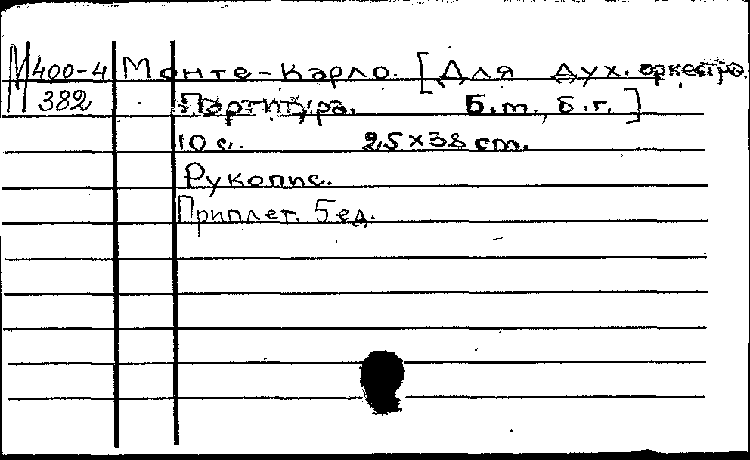 М 400-4 Монте-Карло. [Для дух. оркестра.
382 Партитура. Б.т., б.г.]
10 с. 25×38 cm.
Рукопис.
Приплет. 5 ед.